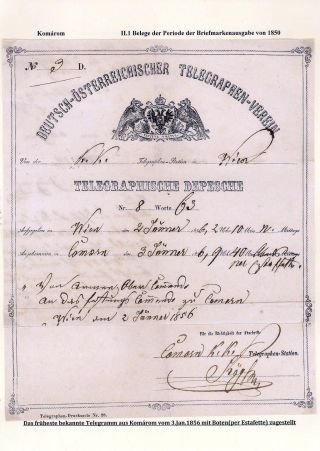 Komárom II.1 Belege der Periode der Briefmarkenausgabe von 1850
№ 9 D.
DEUTSCH-ÖSTERREICHISCHER TELEGRAPHEN-VEREIN
Von der k.k. Telegraphen-Station in Wien
TELEGRAPHISCHE DEPESCHE
Nr. 8 Worte 63
Aufgegeben in Wien den 2 Jänner 6, 2 Uhr 10 M.
Angekommen in Comorn den 3 Jänner 6, 9 Uhr 40
Von Armee Ober Comando
An das Festungs Comando zu Comorn
Wien am 2 Jänner 1856
Für die Richtigkeit der Abschrift
Comorn k.k. Telegraphen-Station.
Telegraphen-Drucksorte Nr. 20.
Das früheste bekannte Telegramm aus Komárom vom 3.Jan.1856 mit Boten(per Estafette) zugestellt